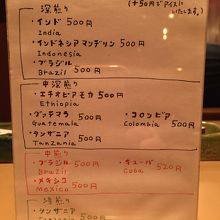 (+50円でアイスに
いたします。)
深煎り
・インド 500円
India
・インドネシア マンデリン 500円
Indonesia
・ブラジル 500円
Brazil
中深煎り
・エチオピアモカ 500円
Ethiopia
・グァテマラ 500円 ・コロンビア 500円
Guatemala Colombia
・タンザニア 500円
Tanzania
中煎り
・ブラジル 500円 ・キューバ 520円
Brazil Cuba
・メキシコ 500円
Mexico
浅煎り
・タンザニア